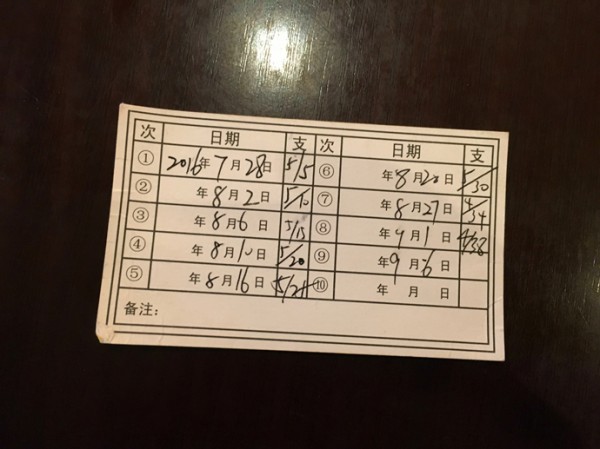 次 日期 支 次 日期 支
① 2016年7月28日 5/5 ⑥ 年8月20日 5/30
② 年8月2日 5/10 ⑦ 年8月27日 4/34
③ 年8月6日 5/15 ⑧ 年9月1日 4/38
④ 年8月10日 5/20 ⑨ 年9月6日
⑤ 年8月16日 5/25 ⑩ 年 月 日
备注：